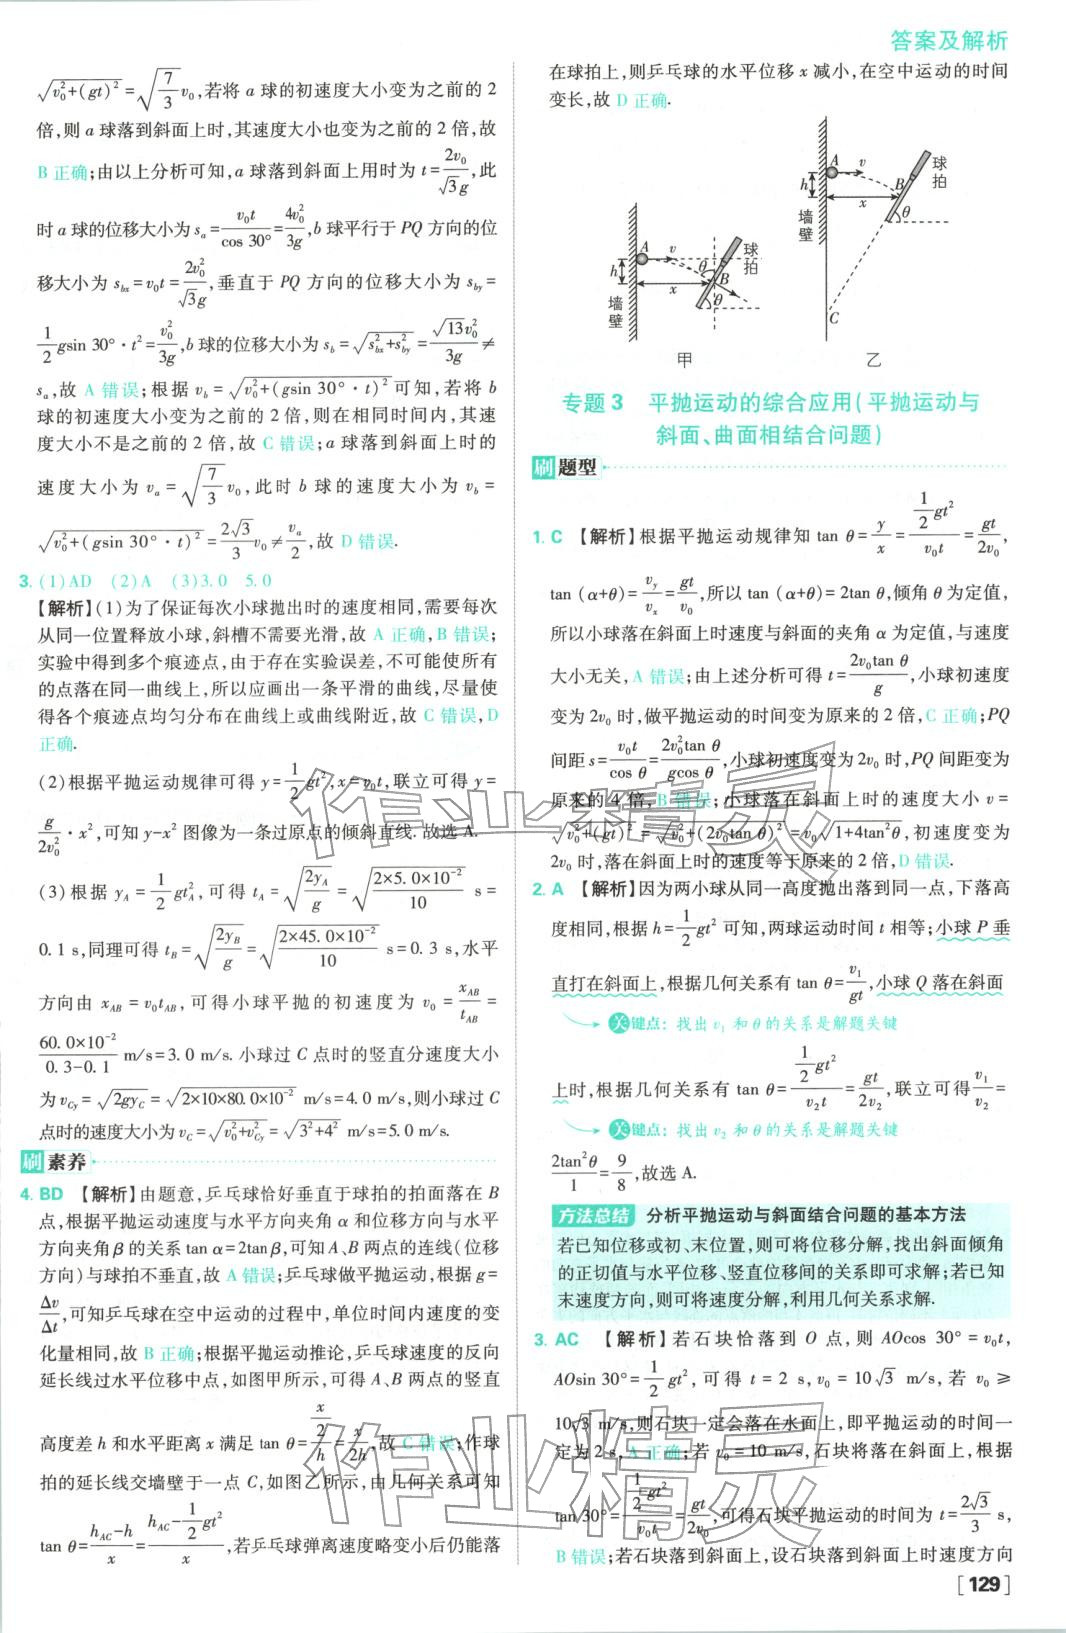 答案及解析
√(v₀²+(gt)²)=√(7/3)v₀,若将 a 球的初速度大小变为之前的 2
倍,则 a 球落到斜面上时,其速度大小也变为之前的 2 倍,故
B 正确;由以上分析可知,a 球落到斜面上用时为 t=2v₀/(√3g),此
时 a 球的位移大小为 sₐ=v₀t/cos 30°=4v₀²/3g,b 球平行于 PQ 方向的位
移大小为 s_bx=v₀t=2v₀²/(√3g),垂直于 PQ 方向的位移大小为 s_by=
1/2 gsin 30°·t²=v₀²/3g,b 球的位移大小为 s_b=√(s_bx²+s_by²)=√13v₀²/3g≠
sₐ,故 A 错误;根据 v_b=√(v₀²+(gsin 30°·t)²)可知,若将 b
球的初速度大小变为之前的 2 倍,则在相同时间内,其速
度大小不是之前的 2 倍,故 C 错误;a 球落到斜面上时的
速度大小为 vₐ=√(7/3)v₀,此时 b 球的速度大小为 v_b=
√(v₀²+(gsin 30°·t)²)=2√3/3 v₀≠vₐ/2,故 D 错误.
3. (1)AD (2)A (3)3.0 5.0
【解析】(1)为了保证每次小球抛出时的速度相同,需要每次
从同一位置释放小球,斜槽不需要光滑,故 A 正确,B 错误;
实验中得到多个痕迹点,由于存在实验误差,不可能使所有
的点落在同一曲线上,所以应画出一条平滑的曲线,尽量使
得各个痕迹点均匀分布在曲线上或曲线附近,故 C 错误,D
正确.
(2)根据平抛运动规律可得 y=1/2 gt²,x=v₀t,联立可得 y=
g/2v₀²·x²,可知 y-x² 图像为一条过原点的倾斜直线.故选 A.
(3)根据 y_A=1/2 gt_A²,可得 t_A=√(2y_A/g)=√(2×5.0×10⁻²/10) s=
0.1 s,同理可得 t_B=√(2y_B/g)=√(2×45.0×10⁻²/10) s=0.3 s,水平
方向由 x_AB=v₀t_AB,可得小球平抛的初速度为 v₀=x_AB/t_AB=
60.0×10⁻²/(0.3-0.1) m/s=3.0 m/s.小球过 C 点时的竖直分速度大小
为 v_Cy=√(2gy_C)=√(2×10×80.0×10⁻²) m/s=4.0 m/s,则小球过 C
点时的速度大小为 v_C=√(v₀²+v_Cy²)=√(3²+4²) m/s=5.0 m/s.
刷素养
4. BD 【解析】由题意,乒乓球恰好垂直于球拍的拍面落在 B
点,根据平抛运动速度与水平方向夹角 α 和位移方向与水平
方向夹角 β 的关系 tan α=2tan β,可知 A、B 两点的连线(位移
方向)与球拍不垂直,故 A 错误;乒乓球做平抛运动,根据 g=
Δv/Δt,可知乒乓球在空中运动的过程中,单位时间内速度的变
化量相同,故 B 正确;根据平抛运动推论,乒乓球速度的反向
延长线过水平位移中点,如图甲所示,可得 A、B 两点的竖直
高度差 h 和水平距离 x 满足 tan θ=(x/2)/h=x/2h,故 C 错误;作球
拍的延长线交墙壁于一点 C,如图乙所示,由几何关系可知
tan θ=(h_AC-h)/x=(h_AC-1/2 gt²)/x,若乒乓球弹离速度略变小后仍能落
在球拍上,则乒乓球的水平位移 x 减小,在空中运动的时间
变长,故 D 正确.
A v 球拍 h θ B x θ 墙壁 甲
A v 球拍 h B x θ 墙壁 C 乙
专题 3 平抛运动的综合应用(平抛运动与
斜面、曲面相结合问题)
刷题型
1. C 【解析】根据平抛运动规律知 tan θ=y/x=(1/2 gt²)/v₀t=gt/2v₀,
tan (α+θ)=v_y/v_x=gt/v₀,所以 tan (α+θ)=2tan θ,倾角 θ 为定值,
所以小球落在斜面上时速度与斜面的夹角 α 为定值,与速度
大小无关,A 错误;由上述分析可得 t=2v₀tan θ/g,小球初速度
变为 2v₀ 时,做平抛运动的时间变为原来的 2 倍,C 正确;PQ
间距 s=v₀t/cos θ=2v₀²tan θ/gcos θ,小球初速度变为 2v₀ 时,PQ 间距变为
原来的 4 倍,B 错误;小球落在斜面上时的速度大小 v=
√(v₀²+(gt)²)=√(v₀²+(2v₀tan θ)²)=v₀√(1+4tan²θ),初速度变为
2v₀ 时,落在斜面上时的速度等于原来的 2 倍,D 错误.
2. A 【解析】因为两小球从同一高度抛出落到同一点,下落高
度相同,根据 h=1/2 gt² 可知,两球运动时间 t 相等;小球 P 垂
直打在斜面上,根据几何关系有 tan θ=v₁/gt,小球 Q 落在斜面
关键点:找出 v₁ 和 θ 的关系是解题关键
上时,根据几何关系有 tan θ=(1/2 gt²)/v₂t=gt/2v₂,联立可得 v₁/v₂=
关键点:找出 v₂ 和 θ 的关系是解题关键
2tan²θ/1=9/8,故选 A.
方法总结 分析平抛运动与斜面结合问题的基本方法
若已知位移或初、末位置,则可将位移分解,找出斜面倾角
的正切值与水平位移、竖直位移间的关系即可求解;若已知
末速度方向,则可将速度分解,利用几何关系求解.
3. AC 【解析】若石块恰落到 O 点,则 AOcos 30°=v₀t,
AOsin 30°=1/2 gt²,可得 t=2 s,v₀=10√3 m/s,若 v₀≥
10√3 m/s,则石块一定会落在水面上,即平抛运动的时间一
定为 2 s,A 正确;若 v₀=10 m/s,石块将落在斜面上,根据
tan 30°=(1/2 gt²)/v₀t=gt/2v₀,可得石块平抛运动的时间为 t=2√3/3 s,
B 错误;若石块落到斜面上,设石块落到斜面上时速度方向
[129]
作业精灵
作业精灵